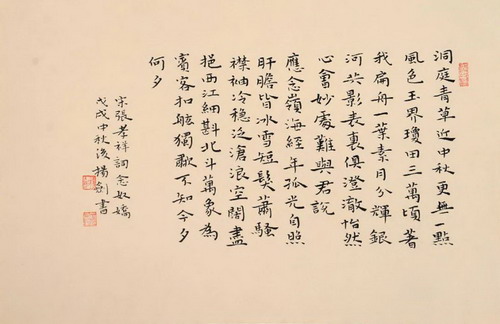 洞庭青草近中秋更無一點
風色玉界瓊田三萬頃著
我扁舟一葉素月分輝銀
河共影表裏俱澄澈怡然
心會妙處難與君說
應念嶺海經年孤光自照
肝膽皆冰雪短髮蕭騷
襟袖冷穩泛滄浪空闊盡
挹西江細斟北斗萬象為
賓客扣舷獨歗不知今夕
何夕
宋張孝祥詞念奴嬌
戊戌中秋後楊書